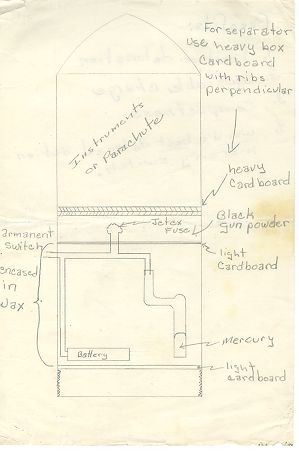 For separator
use heavy box
Cardboard
with ribs
perpendicular
Instruments
or Parachute
heavy
Cardboard
Jetex
Fuse
Black
gun powder
armanent
Switch
light
Cardboard
encased
in
Wax
Mercury
Battery
light
cardboard